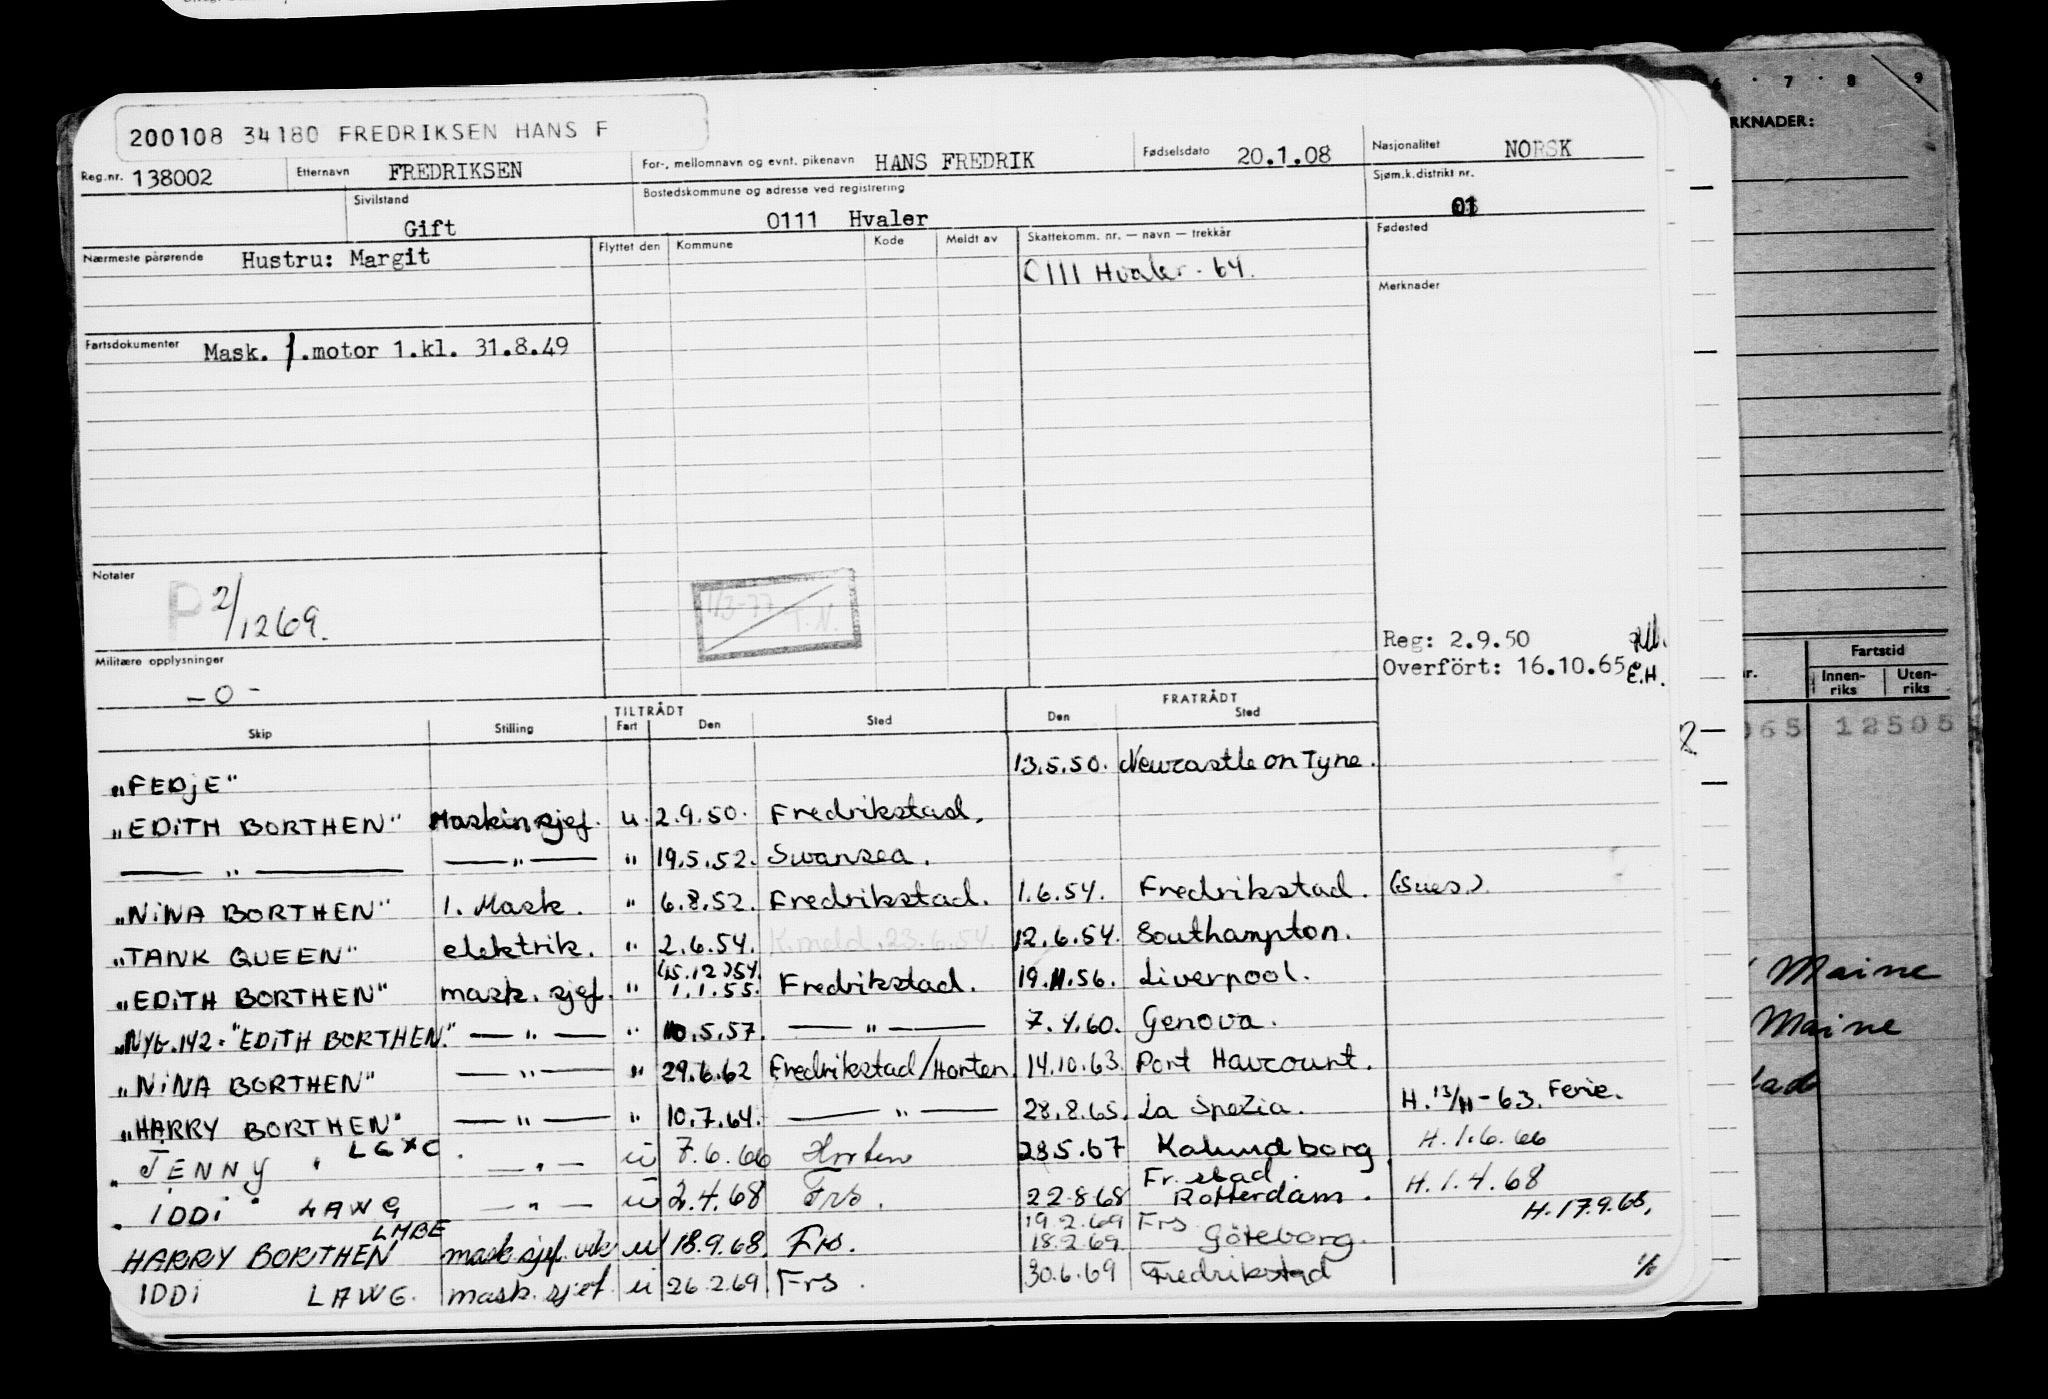 200108 34180 FREDRIKSEN HANS F
Reg.nr. 138002 Etternavn FREDRIKSEN For-, mellomnavn og evnt. pikenavn HANS FREDRIK Fødselsdato 20.1.08 Nasjonalitet NORSK
Sivilstand Gift Bostedskommune og adresse ved registrering 0111 Hvaler Sjøm.k.distrikt nr. 01
Nærmeste pårørende Hustru: Margit Flyttet den Kommune Kode Meldt av Skattekomm. nr. — navn — trekkår Fødested
0111 Hvaler - 64.
Merknader
Fartsdokumenter Mask. 1.motor 1.kl. 31.8.49
Notater P 2/1269.
1/3-77 T.N.
Militære opplysninger
- 0 -
Reg: 2.9.50
Overfört: 16.10.65 E.H.
TILTRÅDT FRATRÅDT
Skip Stilling Fart Den Sted Den Sted
"FEDJE" 13.5.50. Newcastle on Tyne.
"EDITH BORTHEN" Maskinsjef. u. 2.9.50. Fredrikstad.
— " — — " — " 19.5.52. Swansea.
"NINA BORTHEN" 1. Mask. " 6.8.52. Fredrikstad. 1.6.54. Fredrikstad. (Sues.)
"TANK QUEEN" elektrik. " 2.6.54. K.meld. 23.6.54. 12.6.54. Southampton.
(15.12)54.
"EDITH BORTHEN" mask. sjef. " 1.1.55. Fredrikstad. 19.11.56. Liverpool.
"NYG. 142 - "EDITH BORTHEN." — " — " 10.5.57. — " — 7.4.60. Genova.
"NINA BORTHEN" — " — " 29.6.62 Fredrikstad/Horten 14.10.63. Port Harcourt.
"HARRY BORTHEN" — " — " 10.7.64. — " — 28.8.65. La Spezia. H. 13/11-63. Ferie.
"JENNY " LGXC. — " — u 7.6.66 Horten 28.5.67 Kalundborg H.1.6.66
Fr. stad
" IDDI " LAWG — " — u 2.4.68 Frs. 22.8.68 Rotterdam. H.1.4.68
19.2.69 Frs. H.17.9.68.
HARRY BORTHEN LMBE mask.sjef. vik u 18.9.68 Frs. 18.2.69. Göteborg.
IDDI LAWG. mask. sjef u 26.2.69 Frs. 30.6.69 Fredrikstad
6 7 8 9
RKNADER:
Fartstid
r. Innen-riks Uten-riks
065 12505
Maine
Maine